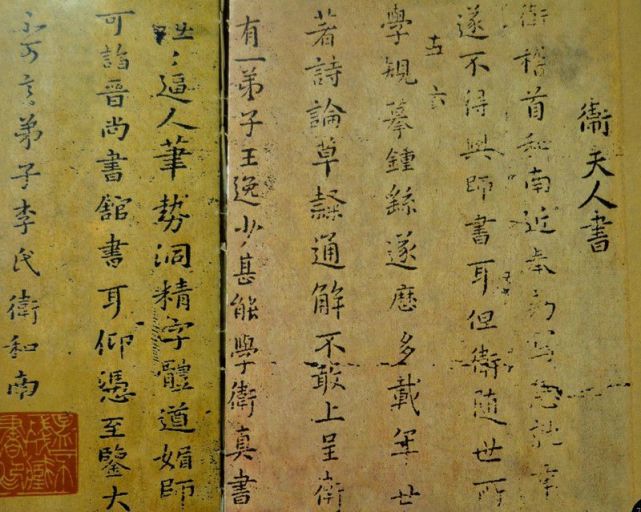 衞夫人書
衛稽首和南近奉勑寫急就章
遂不得與師書耳但衛隨世所
五六
學規摹鍾繇遂歷多載年廿
著詩論草隸通解不敢上呈衛
有一弟子王逸少甚能學衛真書
咄咄逼人筆勢洞精字體遒媚師
可詣晉尚書館書耳仰憑至鑒大
不可言弟子李氏衛和南